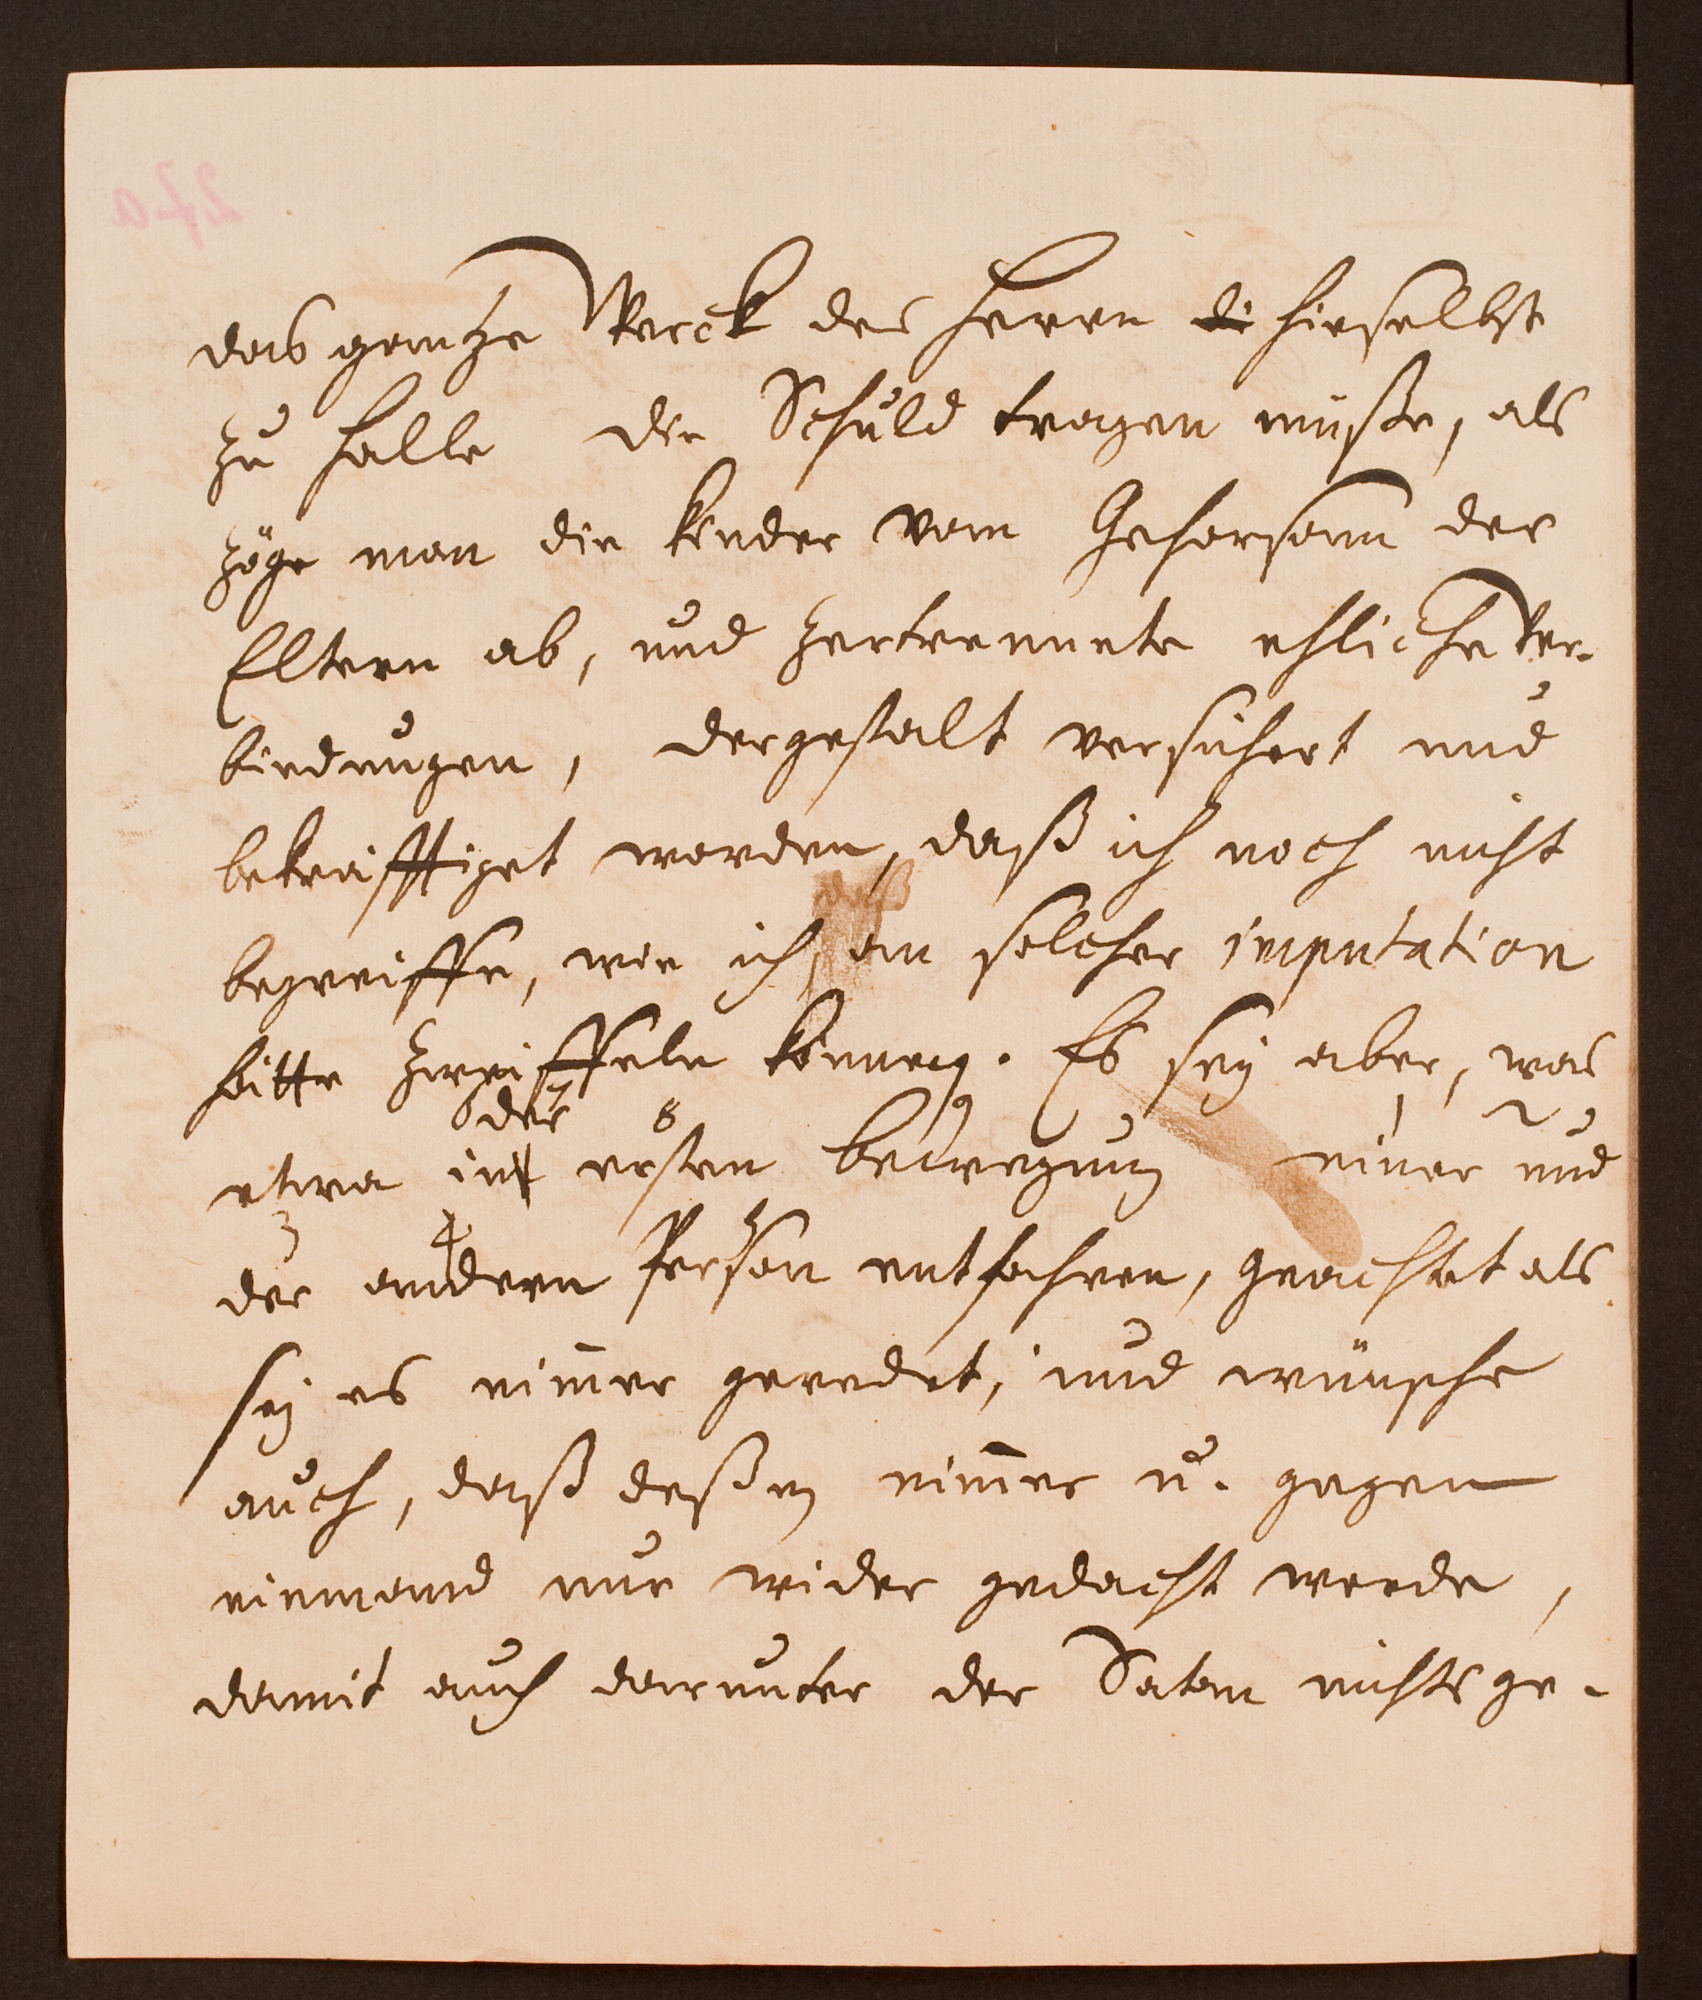 das gantze Werck des Herrn di hieselbst
zu Halle die Schuld tragen müße, als
zöge man die Kinder vom Gehorsam der
Eltern ab, und zertrennete ehliche Ver-
bindungen, dergestalt versichert und
bekräfftiget worden, daß ich noch nicht
begreiffe, wie ich, an solcher imputation
hätte zweiffeln können. Es sey aber, was
der 7 8 9 1 2
etwa in ersten bewegung einer und
3 4
der andern Person entfahren, geachtet als
sey es nimmer geredet; und wünsche
auch, daß deßen nimmer u. gegen
niemand nur wider gedacht werde,
damit auch darunter der Satan nichts ge-